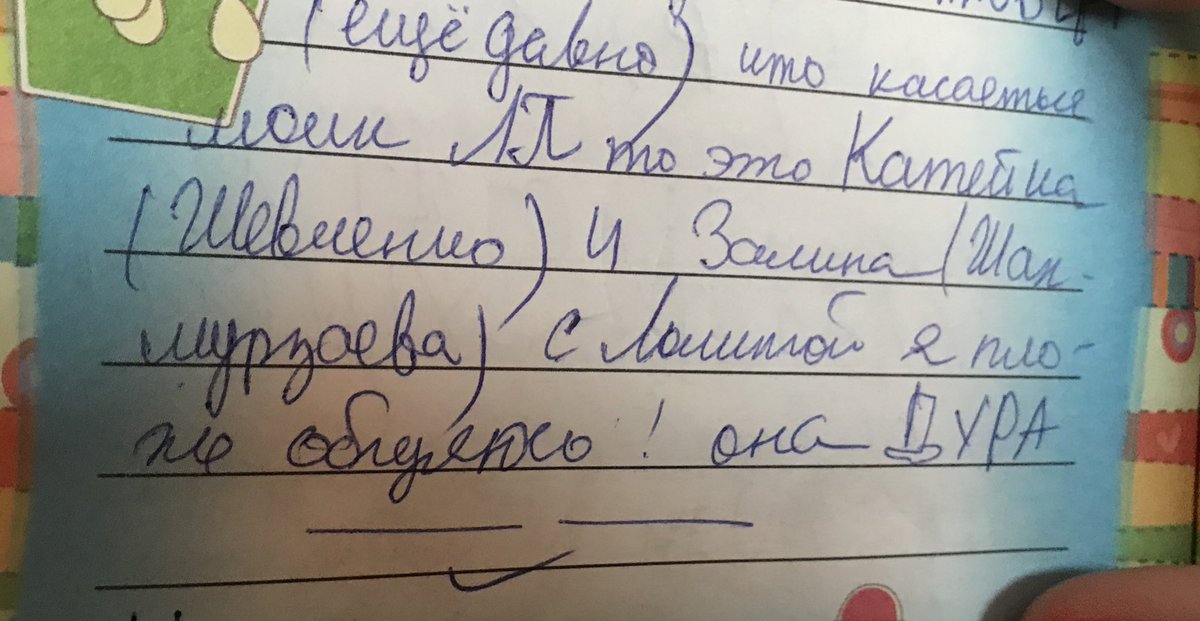 (ещё давно) что касаеться
моих ЛП то это Катейка
(Шевченко) и Залина (Шах-
мурзаева) с Лолитой я пло-
хо общяюсь! она ДУРА